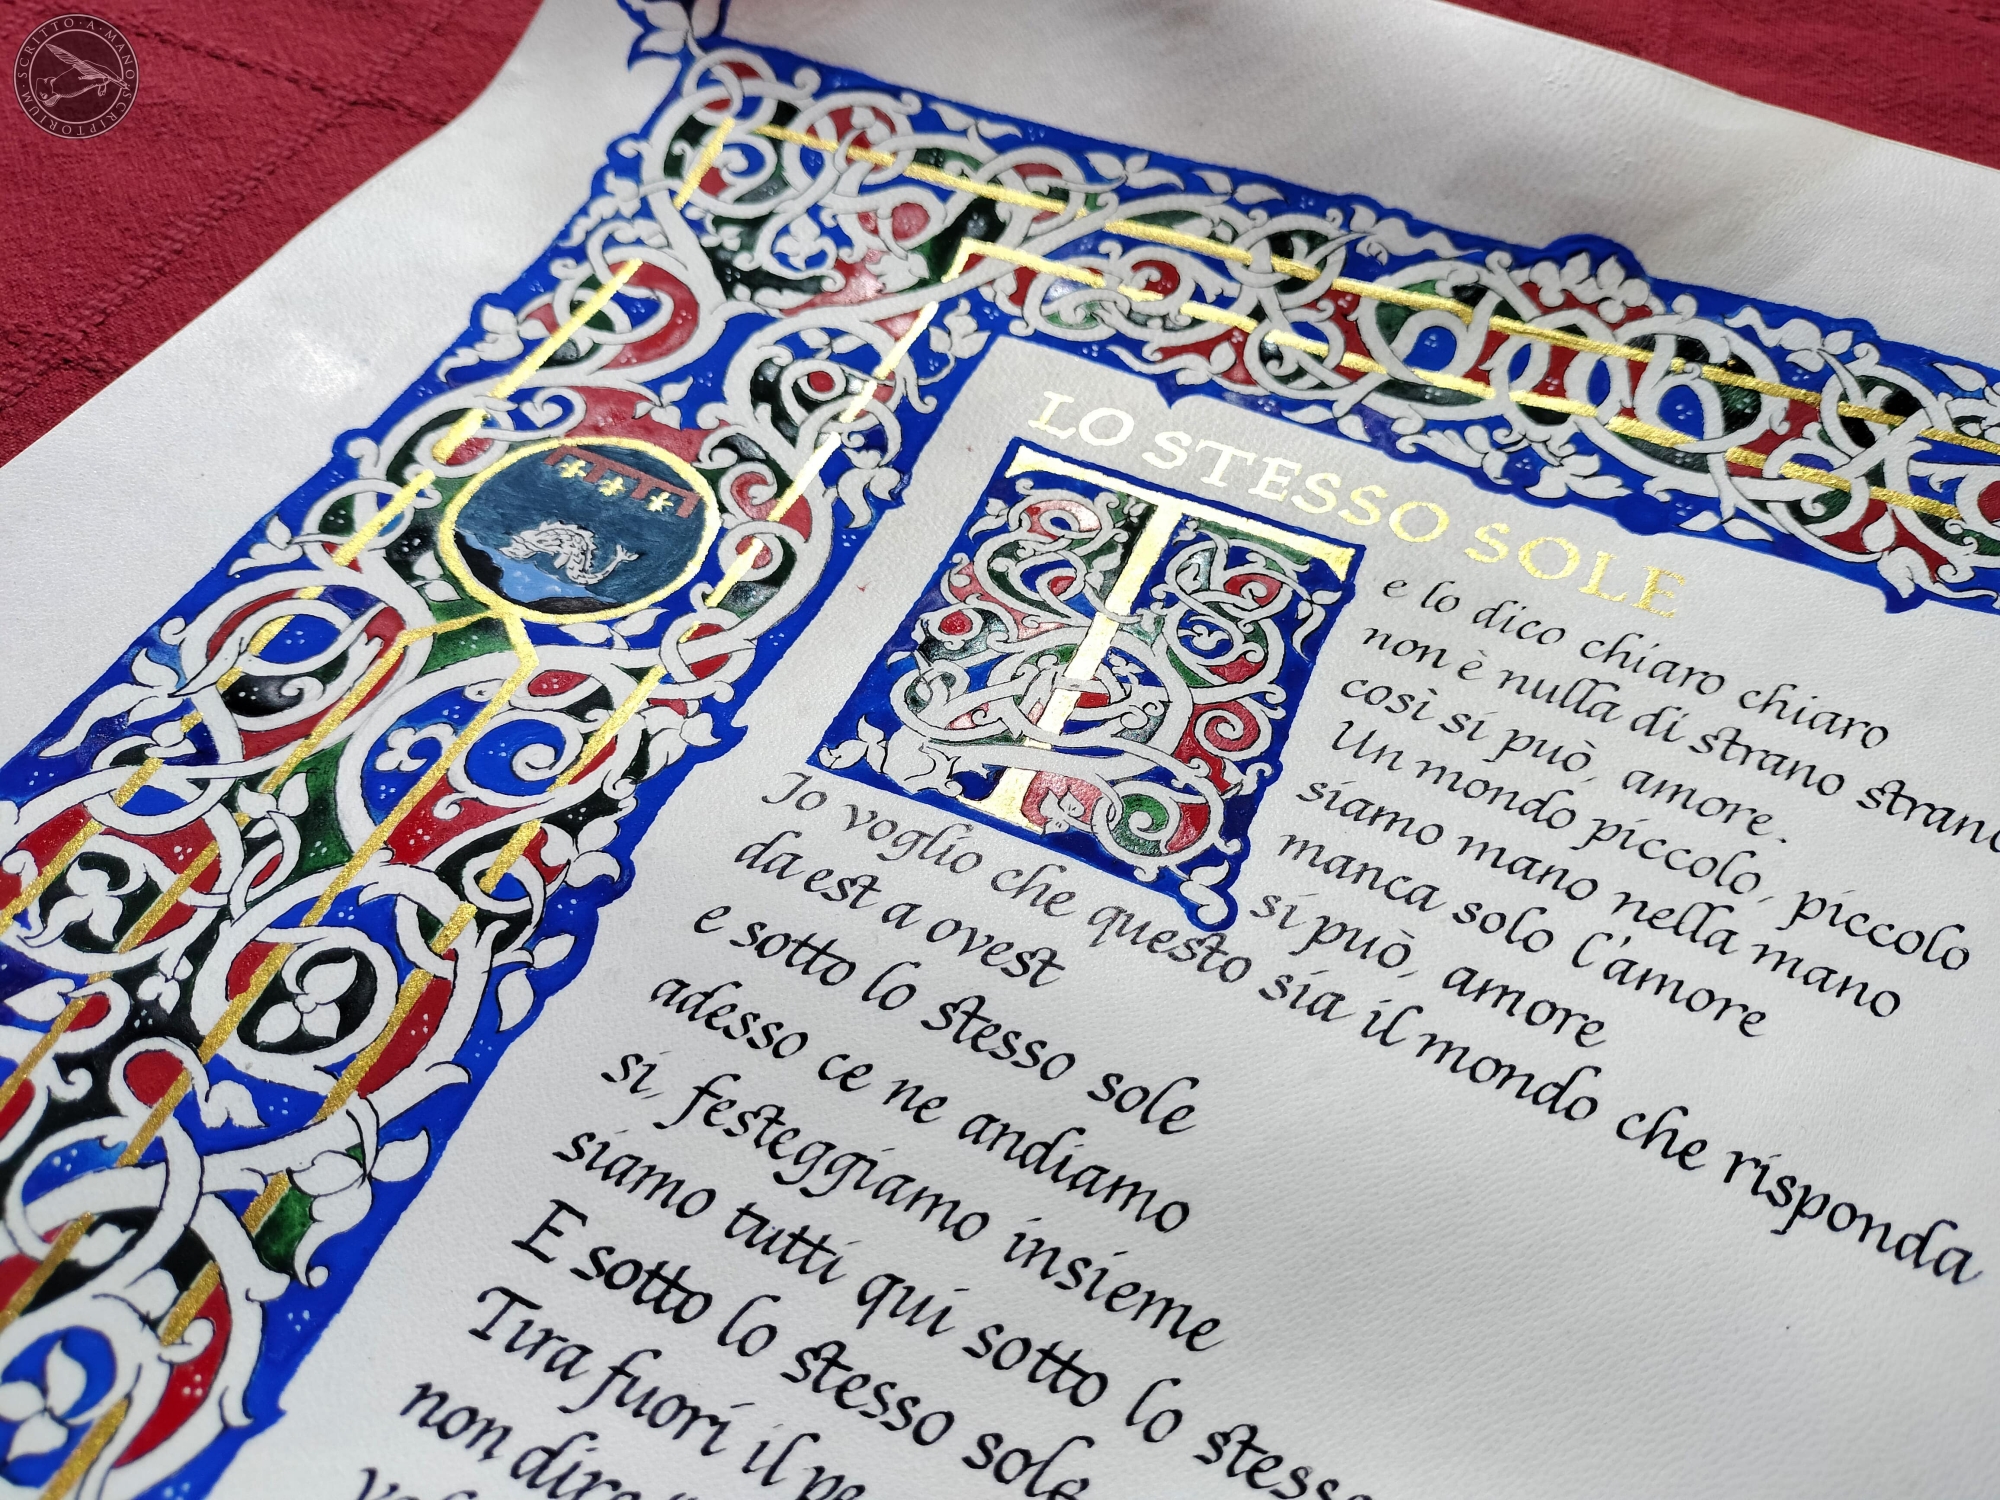 SCRITTO · A · MANO · SCRIPTORIUM
LO STESSO SOLE
Te lo dico chiaro chiaro
non è nulla di strano strano
così si può, amore.
Un mondo piccolo, piccolo
siamo mano nella mano
manca solo l'amore
si può, amore
Io voglio che questo sia il mondo che risponda
da est a ovest
e sotto lo stesso sole
adesso ce ne andiamo
si, festeggiamo insieme
siamo tutti qui sotto lo
E sotto lo stesso sole
Tira fuori il
non